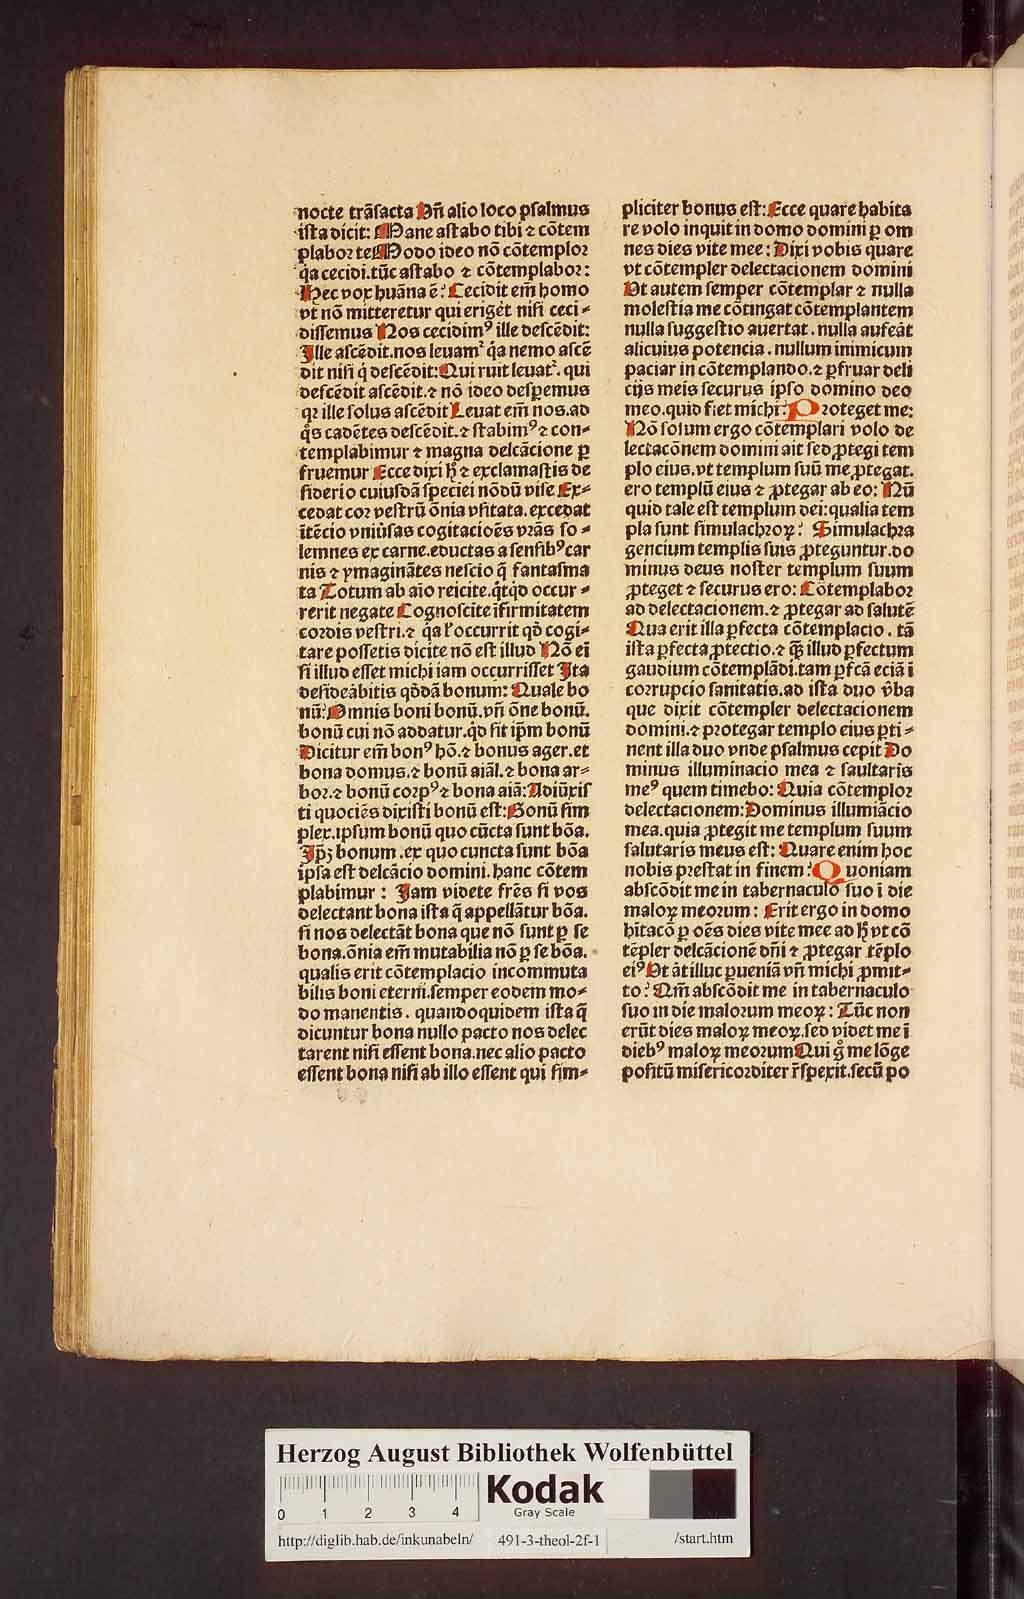 nocte trāsacta Vn̄ alio loco psalmus
ista dicit: Mane astabo tibi ⁊ cōtem
plabor te Modo ideo nō cōtemplor
q̇a cecidi.tūc astabo ⁊ cōtemplabor:
Hec vox huāna ē: Cecidit em̄ homo
vt nō mitteretur qui eriget nisi ceci-
dissemus Nos cecidimꝰ ille descēdit:
Ille ascēdit.nos leuam² q̇a nemo ascē
dit nisi q̇ descēdit: Qui ruit leuat².qui
descēdit ascēdit.⁊ nō ideo desꝑemus
qꝛ ille solus ascēdit Leuat em̄ nos.ad
q̊s cadētes descēdit.⁊ stabimꝰ ⁊ con-
templabimur ⁊ magna delcācione ꝑ
fruemur Ecce dixi h̄ ⁊ exclamastis de
siderio cuiusdā speciei nōdū vise Ex-
cedat cor vestrū ōnia vsitata.excedat
ītēcio vniūsas cogitacioēs vr̄as so-
lemnes ex carne.eductas a sensibꝰ car
nis ⁊ ymaginātes nescio q̄ fantasma
ta Totum ab aīo reicite.q̇tq̇d occur-
rerit negate Cognoscite īfirmitatem
cordis vestri.⁊ q̇a l̓ occurrit qd̓ cogi-
tare possetis dicite nō est illud Nō eī
si illud esset michi iam occurrisset Ita
desideābitis qd̓dā bonum: Quale bo
nū: Omnis boni bonū.vn̄ ōne bonū.
bonū cui nō addatur.qd̓ sit ip̄m bonū
Dicitur em̄ bonꝰ hō.⁊ bonus ager.et
bona domus.⁊ bonū aīal.⁊ bona ar-
bor.⁊ bonū corpꝰ ⁊ bona aīa: Adiūxis
ti quocies dixisti bonū est: Bonū sim
plex.ipsum bonū quo cūcta sunt bōa.
Ip̄ꝫ bonum.ex quo cuncta sunt bōa
ipsa est delcācio domini.hanc cōtem
plabimur: Iam videte fr̄es si vos
delectant bona ista q̄ appellātur bōa.
si nos delectāt bona que nō sunt ꝑ se
bona.ōnia em̄ mutabilia nō ꝑ se bōa.
qualis erit cōtemplacio incommuta
bilis boni eterni.semper eodem mo-
do manentis.quandoquidem ista q̄
dicuntur bona nullo pacto nos delec
tarent nisi essent bona.nec alio pacto
essent bona nisi ab illo essent qui sim-
pliciter bonus est: Ecce quare habita
re volo inquit in domo domini ꝑ om
nes dies vite mee: Dixi vobis quare
vt cōtempler delectacionem domini
Vt autem semper cōtemplar ⁊ nulla
molestia me cōtingat cōtemplantem
nulla suggestio auertat.nulla auferāt
alicuius potencia.nullum inimicum
paciar in cōtemplando.⁊ ꝑfruar deli
cijs meis securus ipso domino deo
meo.quid fiet michi: Proteget me:
Nō solum ergo cōtemplari volo de
lectacōnem domini ait sed ꝓtegi tem
plo eius.vt templum suū me ꝓtegat.
ero templū eius ⁊ ꝓtegar ab eo: Nū
quid tale est templum dei: qualia tem
pla sunt simulachroꝝ: Simulachra
gencium templis suis ꝓteguntur.do
minus deus noster templum suum
ꝓteget ⁊ securus ero: Cōtemplabor
ad delectacionem.⁊ ꝓtegar ad salutē
Qua erit illa ꝑfecta cōtemplacio.tā
ista ꝑfecta ꝓtectio.⁊ q̄ꝫ illud ꝑfectum
gaudium cōtemplādi.tam ꝑfcā eciā ī
corrupcio sanitatis.ad ista duo v̓ba
que dixit cōtempler delectacionem
domini.⁊ protegar templo eius ꝑti-
nent illa duo vnde psalmus cepit Do
minus illuminacio mea ⁊ saultaris
meꝰ quem timebo: Quia cōtemplor
delectacionem: Dominus illumiācio
mea.quia ꝓtegit me templum suum
salutaris meus est: Quare enim hoc
nobis prestat in finem: Quoniam
abscōdit me in tabernaculo suo ī die
maloꝝ meorum: Erit ergo in domo
hītacō ꝑ oēs dies vite mee ad h̄ vt cō
tēpler delcācionē dn̄i ⁊ ꝓtegar tēplo
eiꝰ Vt āt illuc ꝑueniā vn̄ michi ꝓmit-
to: Qm̄ abscōdit me in tabernaculo
suo in die malorum meoꝝ: Tūc non
erūt dies maloꝝ meoꝝ.sed videt me ī
diebꝰ maloꝝ meorum Qui g̊ me lōge
positū misericorditer r̄spexit.secū po
Herzog August Bibliothek Wolfenbüttel
0 1 2 3 4
Kodak
Gray Scale
http://diglib.hab.de/inkunabeln/ 491-3-theol-2f-1 /start.htm